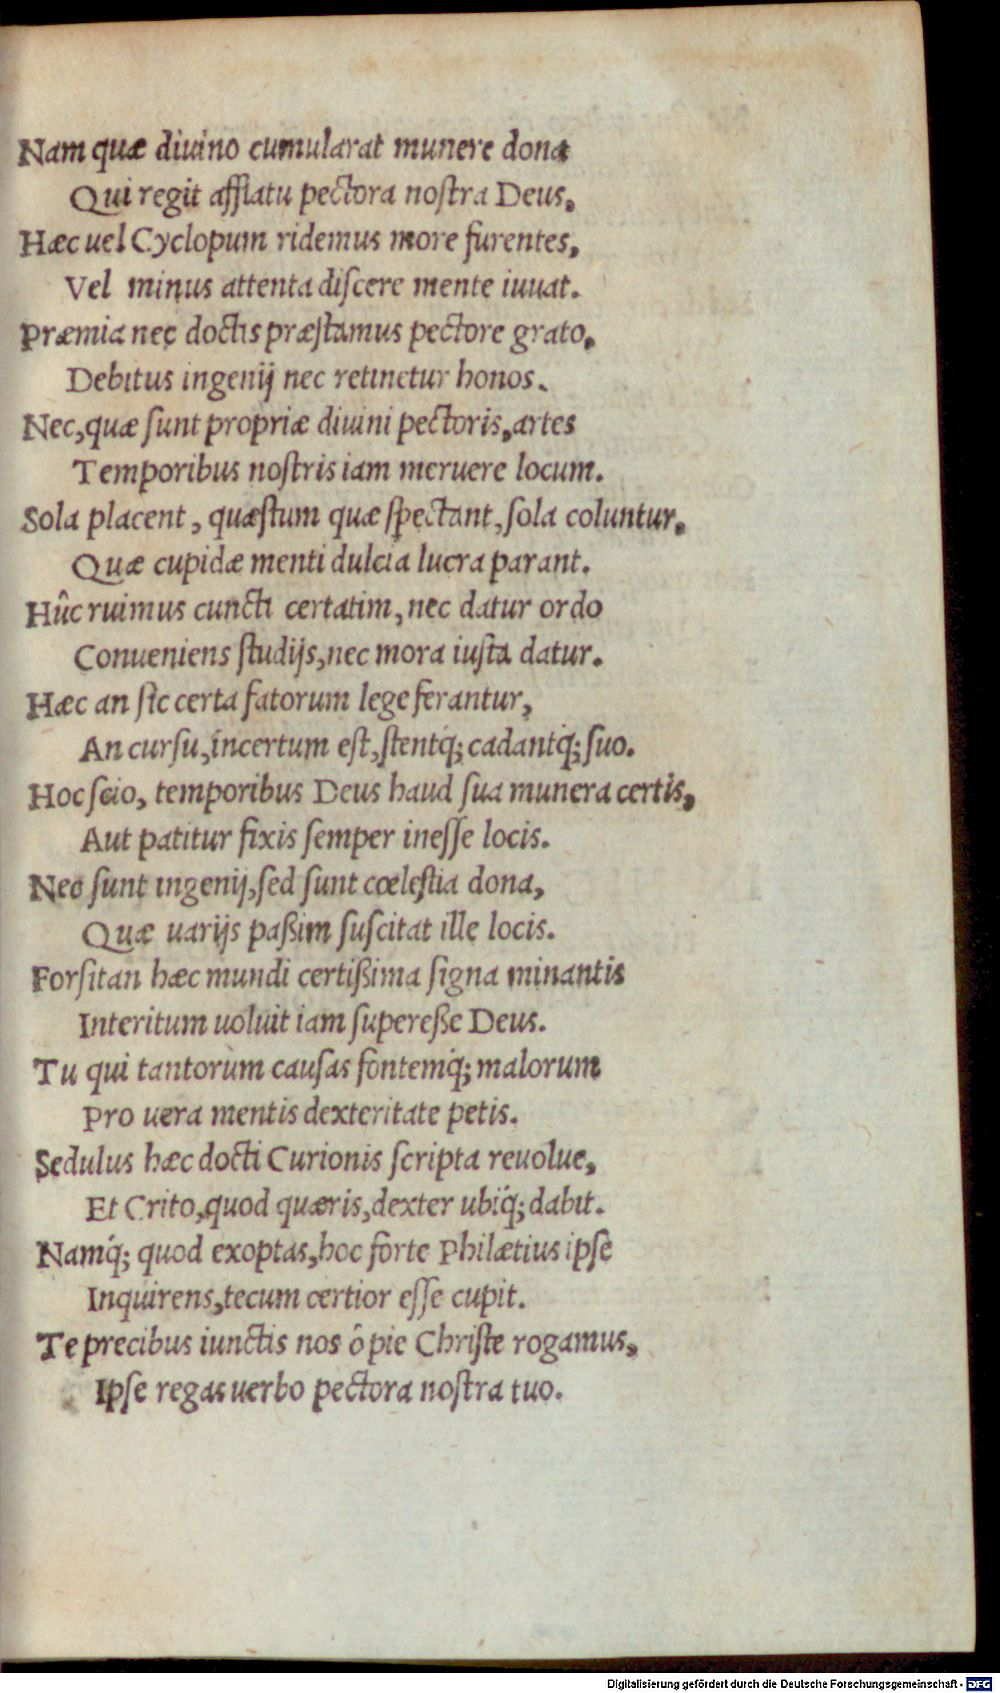 Nam quæ diuino cumularat munere dona
Qui regit afflatu pectora noſtra Deus,
Hæc uel Cyclopum ridemus more furentes,
Vel minus attenta diſcere mente iuuat.
Præmia nec doctis præſtamus pectore grato,
Debitus ingenij nec retinetur honos.
Nec, quæ ſunt propriæ diuini pectoris, artes
Temporibus noſtris iam meruere locum.
Sola placent, quæſtum quæ ſpectant, ſola coluntur,
Quæ cupidæ menti dulcia lucra parant.
Hûc ruimus cuncti certatim, nec datur ordo
Conueniens ſtudijs, nec mora iuſta datur.
Hæc an ſic certa fatorum lege ferantur,
An curſu, incertum eſt, ſtentq́; cadantq́; ſuo.
Hoc ſcio, temporibus Deus haud ſua munera certis,
Aut patitur fixis ſemper ineſſe locis.
Nec ſunt ingenij, ſed ſunt cœleſtia dona,
Quæ uarijs paßim ſuſcitat ille locis.
Forſitan hæc mundi certißima ſigna minantis
Interitum uoluit iam ſupereße Deus.
Tu qui tantorum cauſas fontemq́; malorum
Pro uera mentis dexteritate petis.
Sedulus hæc docti Curionis ſcripta reuolue,
Et Crito, quod quæris, dexter ubiq́; dabit.
Namq́; quod exoptas, hoc forte Philætius ipſe
Inquirens, tecum certior eſſe cupit.
Te precibus iunctis nos ô pie Chriſte rogamus,
Ipſe regas uerbo pectora noſtra tuo.
Digitalisierung gefördert durch die Deutsche Forschungsgemeinschaft - DFG